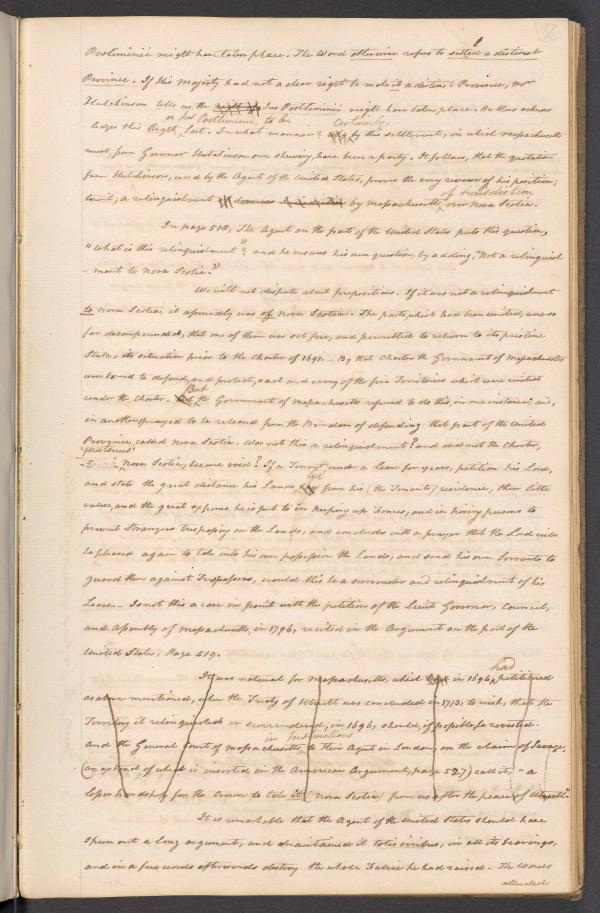 7
Postliminii might have taken place. The Word otherwise refers to settled a distinct
Province. If His Majesty had not a clear right to make it a distinct Province, Mr
Hutchinson tells us the Jus Postliminii might have taken place. He thus acknow
or Jus Postliminii, to be Certainly,
ledges this Right, lost. In what manner? by this settlement; in which Massachusetts
must, from Governor Hutchinson own shewing, have been a party. It follows, that the quotation
from Hutchinson, used by the Agent of the United States, proves the very reverse of his position;
of Jurisdiction
towit; a relinquishment by Massachusetts over Nova Scotia.
In page 518, The Agent on the part of the United States puts this question,
"What is this relinquishment"? and he answers his own question, by adding, "Not a relinquish
-ment to Nova Scotia."
We will not dispute about prepositions. If it was not a relinquishment
to Nova Scotia, it assuredly was of Nova Scotia. The parts, which had been united, are so
far decompounded, that one of them was set free, and permitted to return to its pristine
State, its situation prior to the Charter of 1691. - By that Charter the Government of Massachusetts
were bound to defend, and protect, each and every of the five Territories which were united
But
under the Charter. the Government of Massachusetts refused to do this, in one instance; and,
in another prayed to be released from the Burden of defending that part of the United
Province, called Nova Scotia. Was not this a relinquishment? and did not the Charter,
quatenus
Nova Scotia, become void? If a Tenant under a lease for years, petition his Lord,
lie
and state the great distance his Lands from his (the Tenants) residence, their little
value, and the great expense he is put to in keeping up Fences, and in hiring persons to
prevent Strangers trespassing on the Lands, and concludes with a prayer that the Lord will
be pleased again to take into his own possession the Lands, and send his own Servants to
guard them against Trespassers, would this be a surrender and relinquishment of his
Lease. - Is not this a case in point with the petition of the Lieut Governor, Council,
and Assembly of Massachusetts, in 1796, recited in the Argument on the part of the
United States, Page 519.
had
It was natural for Massachusetts, which in 1696 petitioned
as above mentioned, when the Treaty of Utrecht was concluded in 1713, to wish, that the
Territory it relinquished or surrendered, in 1696, should, if possible, be revested.
in Instructions
and the General Court of Massachusetts, to their Agent in London, on the claim of Savage,
(an extract of which is inserted in the American Argument, page 527) call it, "a
lesser hardship for the Crown to take it (Nova Scotia) from us after the peace of Utrecht".
It is remarkable that the Agent of the United States should have
spun out a long argument, and maintained it totis viribus, in all its bearings,
and in a few words afterwards destroy the whole Fabric he had raised. The Words
alluded